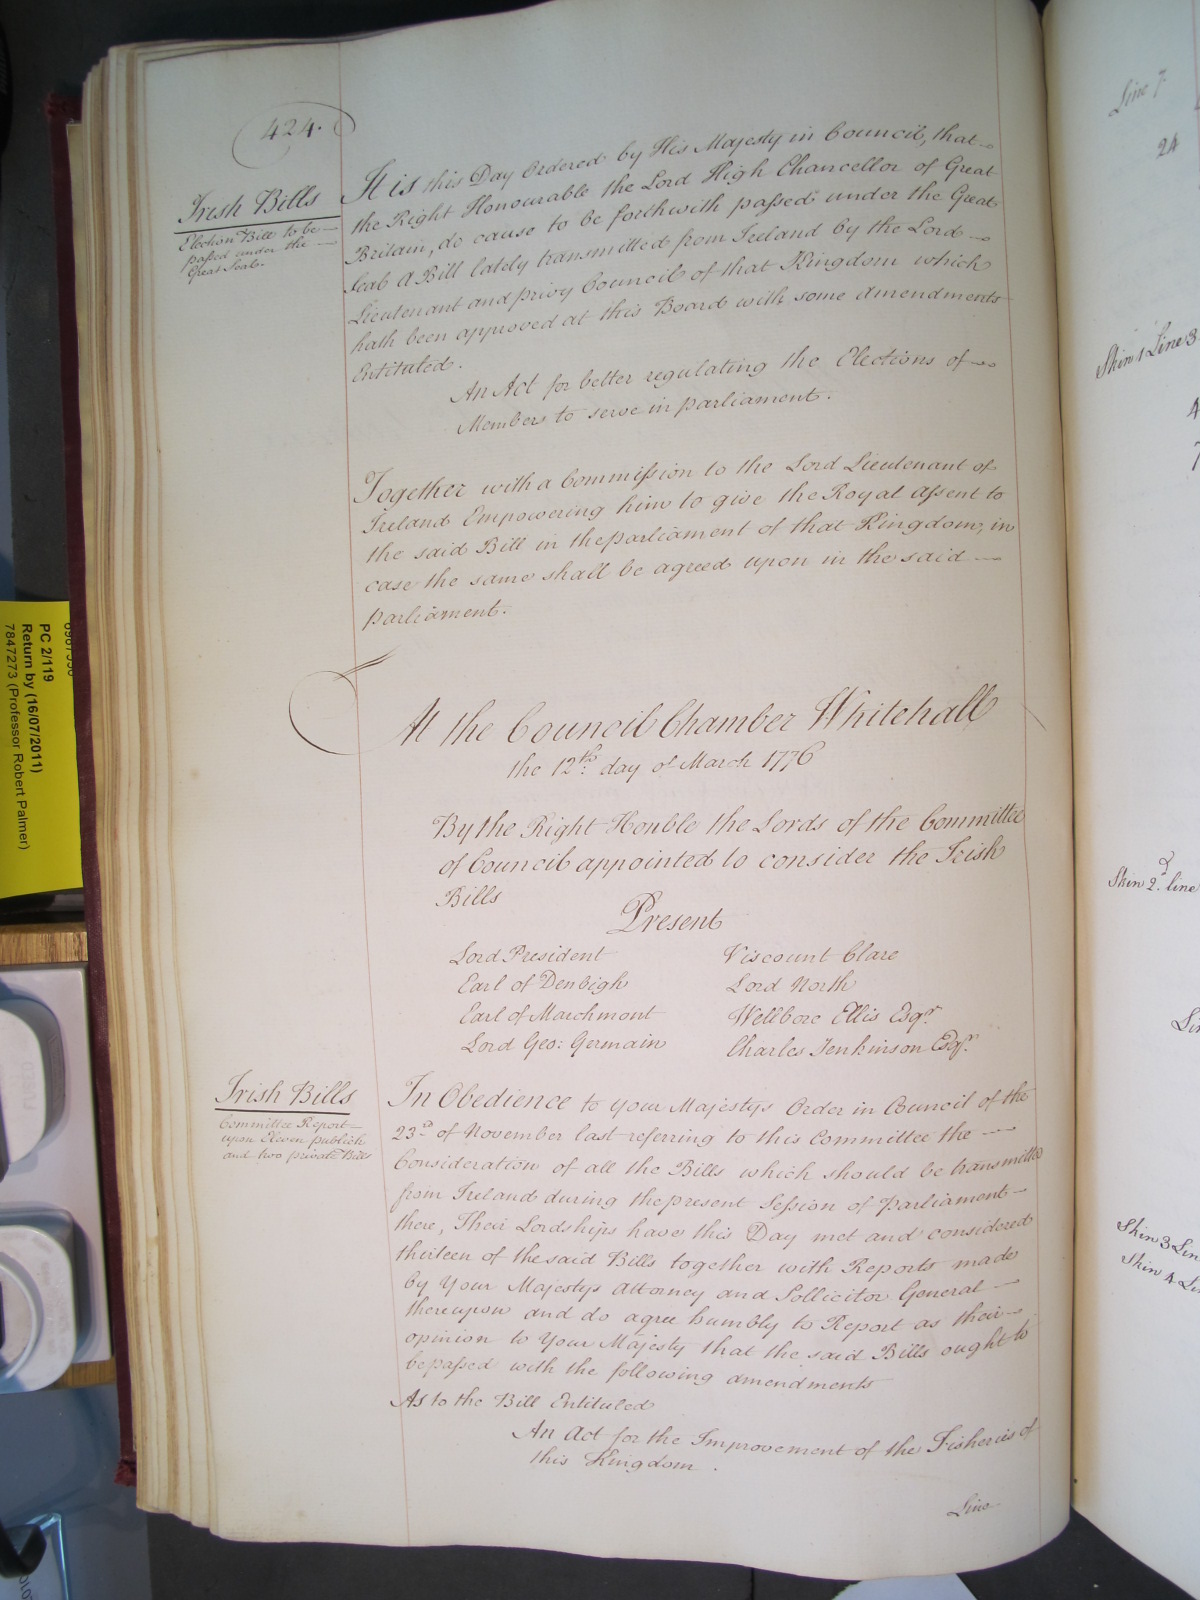 424.
Irish Bills
Election Bill to be
passed under the
Great Seal.
It is this Day Ordered by His Majesty in Council, that
the Right Honourable the Lord High Chancellor of Great
Britain, do cause to be forthwith passed under the Great
Seal A Bill lately transmitted from Ireland by the Lord
Lieutenant and privy Council of that Kingdom which
hath been approved at this Board with some Amendments
Entituled.
An Act for better regulating the Elections of
Members to serve in parliament.
Together with a Commission to the Lord Lieutenant of
Ireland Empowering him to give the Royal Assent to
the said Bill in the parliament of that Kingdom, in
case the same shall be agreed upon in the said
parliament.
At the Council Chamber Whitehall
the 12th. day of March 1776
By the Right Honble the Lords of the Committee
of Council appointed to consider the Irish
Bills
Present
Lord President
Earl of Denbigh
Earl of Marchmont
Lord Geo: Germain
Viscount Clare
Lord North
Wellbore Ellis Esqr.
Charles Jenkinson Esqr.
Irish Bills
Committee Report
upon Eleven publick
and two private Bills
In Obedience to Your Majestys Order in Council of the
23d. of November last referring to this Committee the
Consideration of all the Bills which should be transmitted
from Ireland during the present Session of Parliament
there, Their Lordships have this Day met and considered
thirteen of the said Bills together with Reports made
by Your Majestys Attorney and Sollicitor General
thereupon and do agree humbly to Report as their
opinion to Your Majesty that the said Bills ought to
be passed with the following amendments
As to the Bill Entituled
An Act for the Improvement of the Fisheries of
this Kingdom.
Line
Line 7
24
Skin 1 Line 3
Skin 2d. line
Skin 3 Lin
Skin 4 Li
PC 2/119
Return by (16/07/2011)
7847273 (Professor Robert Palmer)